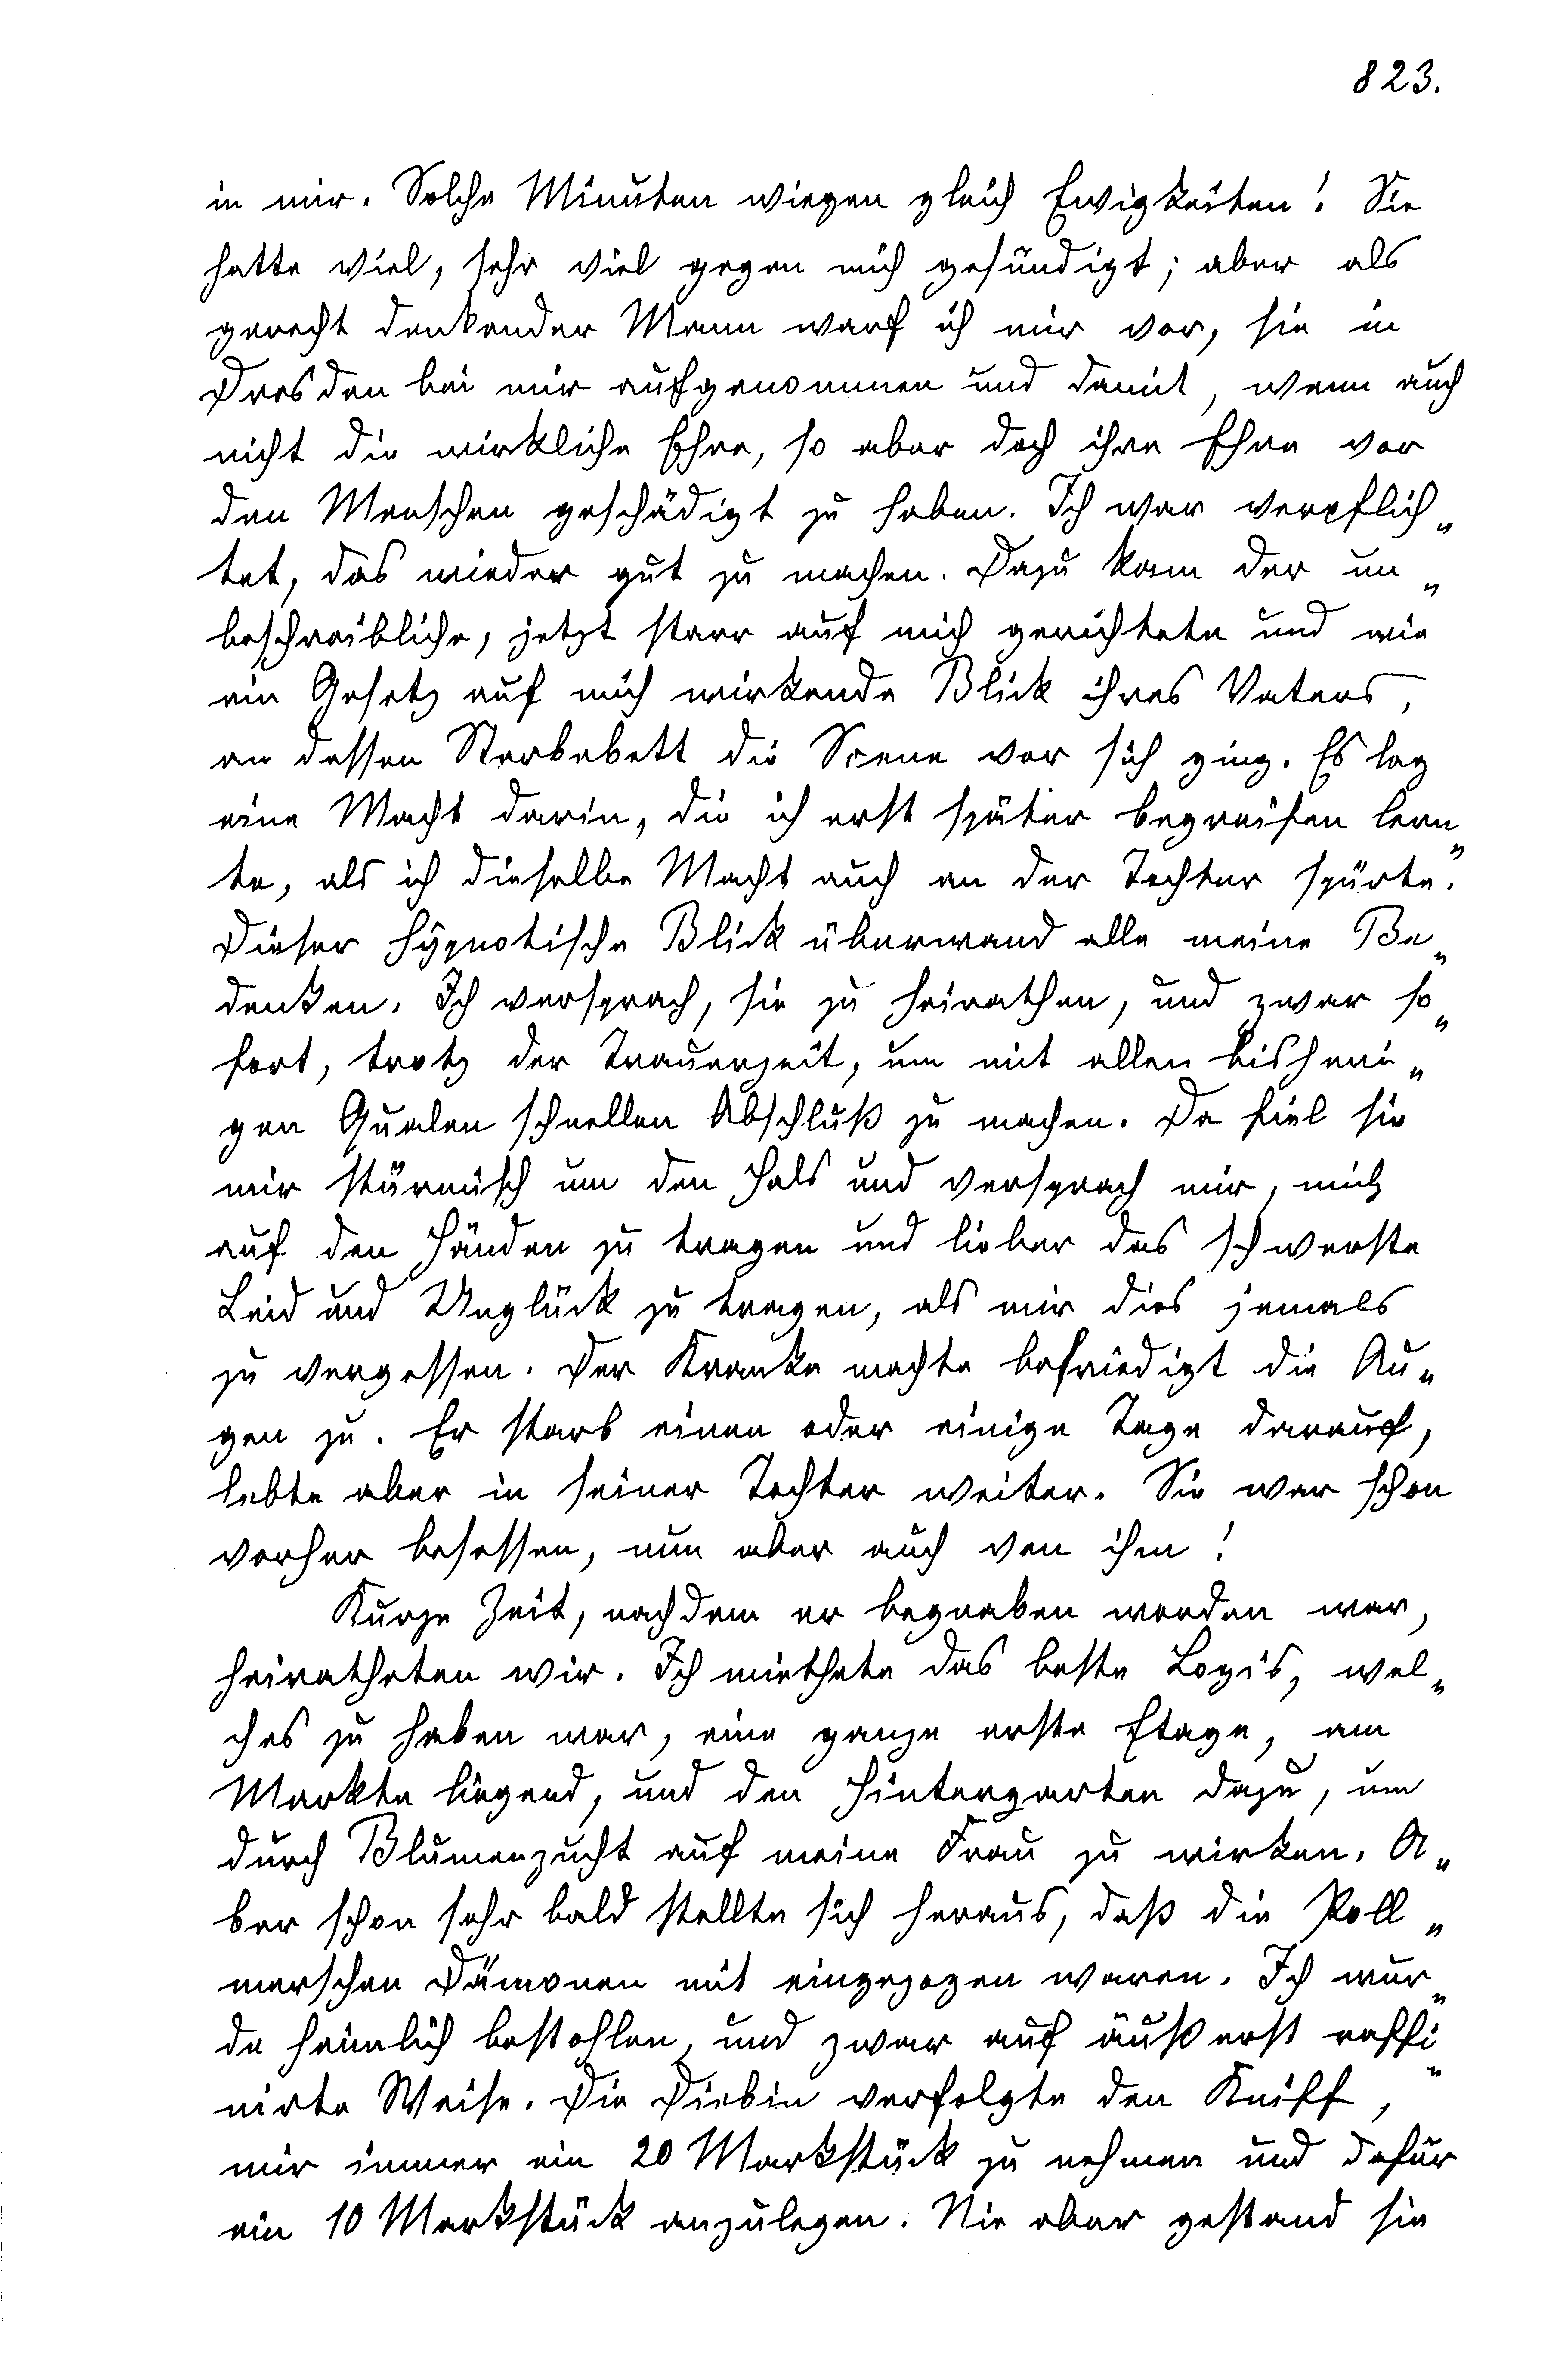 823.
in mir. Solche Minuten wiegen gleich Ewigkeiten! Sie
hatte viel, sehr viel gegen mich gesündigt; aber als
gerecht denkender Mann warf ich mir vor, sie in
Dresden bei mir aufgenommen und damit, wenn auch
nicht die wirkliche Ehre, so aber doch ihre Ehre vor
den Menschen geschädigt zu haben. Ich war verpflich„
tet, das wieder gut zu machen. Dazu kam der un„
beschreibliche, jetzt starr auf mich gerichtete und wie
ein Gesetz auf mich wirkende Blick ihres Vaters,
an dessen Sterbebett die Scene vor sich ging. Es lag
eine Macht darin, die ich erst später begreifen lern„
te, als ich dieselbe Macht auch an der Tochter spürte.
Dieser hypnotische Blick überwand alle meine Be„
denken. Ich versprach, sie zu heirathen, und zwar so„
fort, trotz der Trauerzeit, um mit allen bisheri„
gen Qualen schnellen Abschluß zu machen. Da fiel sie
mir stürmisch um den Hals und versprach mir, mich
auf den Händen zu tragen und lieber das schwerste
Leid und Unglück zu tragen, als mir dies jemals
zu vergessen. Der Kranke machte befriedigt die Au„
gen zu. Er starb einen oder einige Tage darauf,
lebte aber in seiner Tochter weiter. Sie war schon
vorher besessen, nun aber auch von ihm!
Kurze Zeit, nachdem er begraben worden war,
heiratheten wir. Ich miethete das beste Logis, wel„
ches zu haben war, eine ganze erste Etage, am
Markte liegend, und den Hintergarten dazu, um
durch Blumenzucht auf meine Frau zu wirken. A„
ber schon sehr bald stellte sich heraus, daß die Poll„
merschen Dämonen mit eingezogen waren. Ich wur„
de heimlich bestohlen, und zwar auf äußerst raffi„
nirte Weise. Die Diebin verfolgte den Kniff,
mir immer ein 20 Markstück zu nehmen und dafür
ein 10 Markstück anzulegen. Nie aber gestand sie